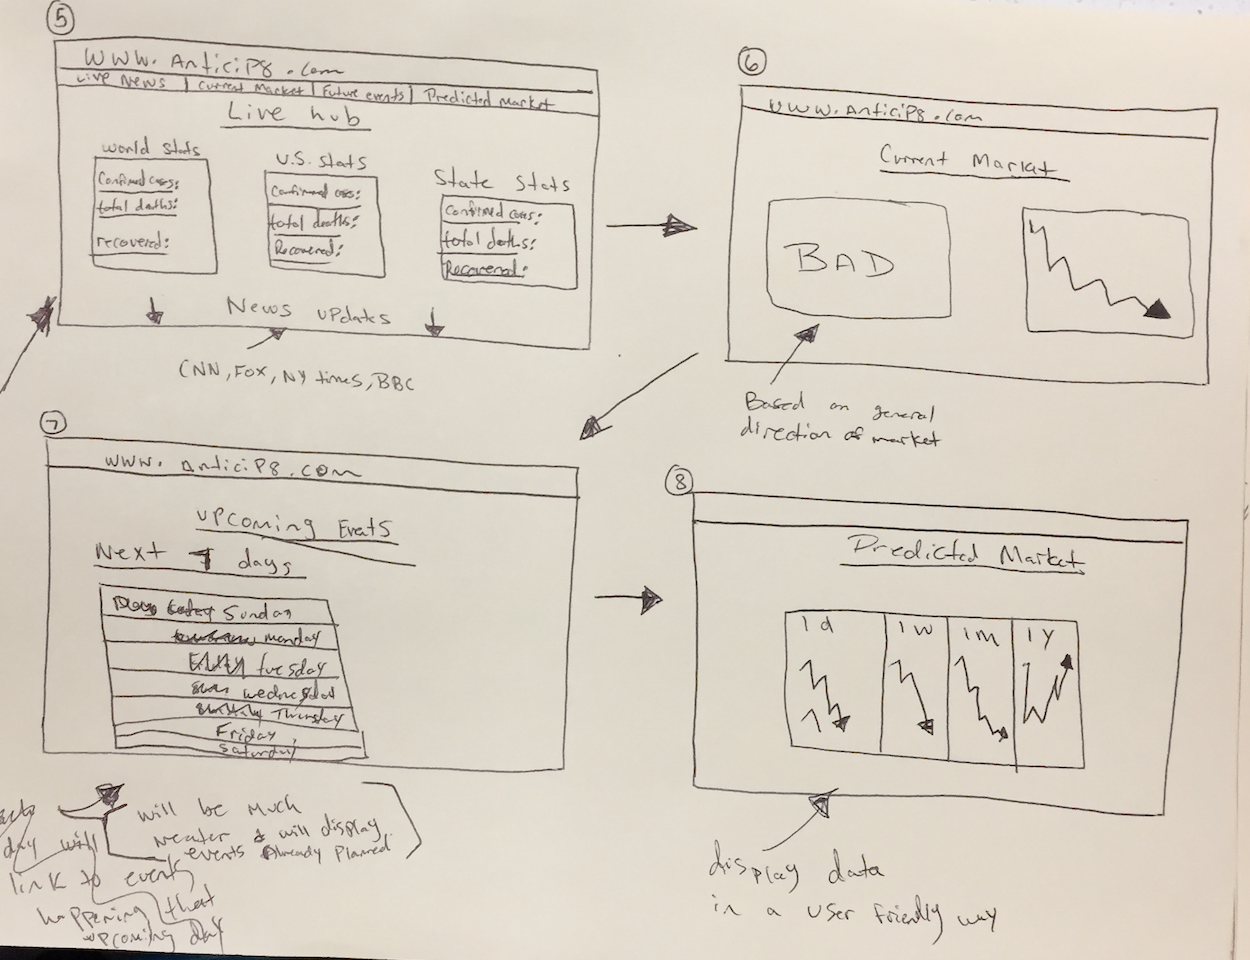 5
www.AnticiP8.com
Live News | Current Market | Future events | Predicted Market
Live hub
World Stats
Confirmed cases:
total deaths:
recovered:
U.S. Stats
Confirmed cases:
total deaths:
Recovered:
State Stats
Confirmed cases:
total deaths:
Recovered:
News updates
CNN, Fox, NY times, BBC
6
www.AnticiP8.com
Current Market
BAD
Based on general
direction of market
7
www.AnticiP8.com
Upcoming Events
Next 7 days
Sunday
monday
tuesday
wednesday
Thursday
Friday
Saturday
will be much
neater & will display
events Already Planned
day will
link to events
happening that
upcoming day
8
Predicted Market
1 d
1 w
1 m
1 y
display data
in a user friendly way